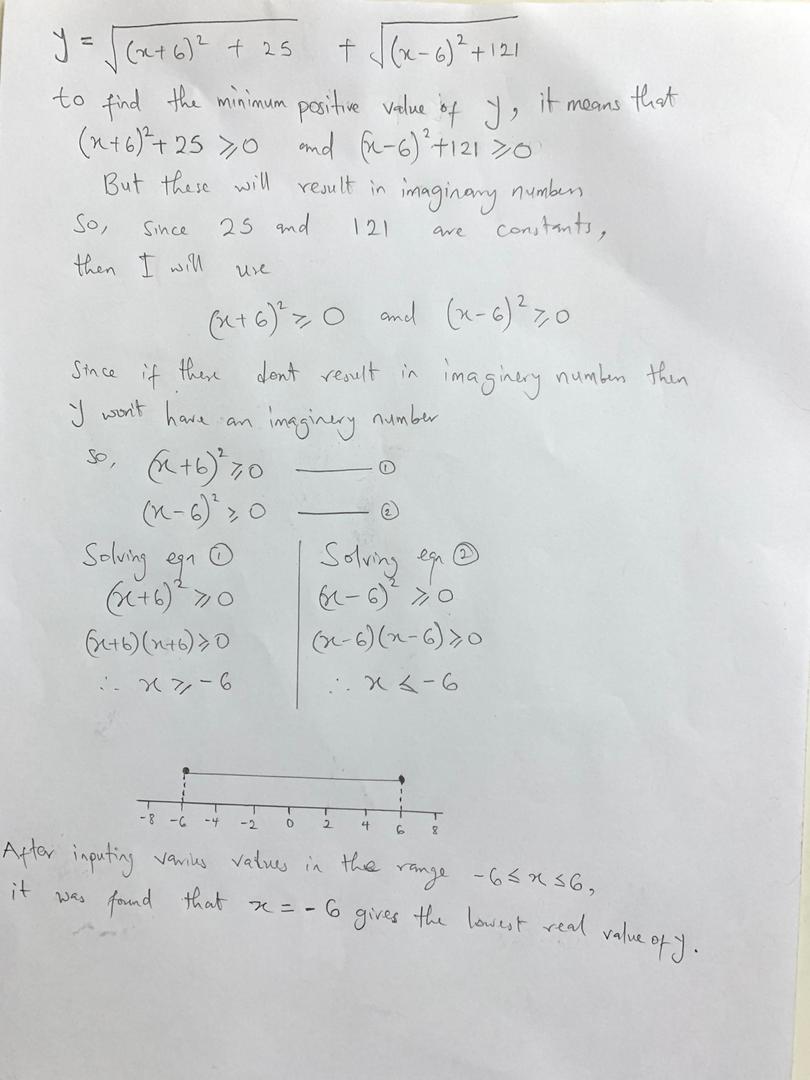 y = √((x+6)² + 25) + √((x-6)² + 121)
to find the minimum positive value of y, it means that
(x+6)² + 25 ⩾ 0 and (x-6)² + 121 ⩾ 0
But these will result in imaginary numbers
So, since 25 and 121 are constants,
then I will use
(x+6)² ⩾ 0 and (x-6)² ⩾ 0
Since if these dont result in imaginery numbers then
y won't have an imaginery number
So, (x+6)² ⩾ 0 —— ①
(x-6)² ⩾ 0 —— ②
Solving eqn ①
(x+6)² ⩾ 0
(x+6)(x+6) ⩾ 0
∴ x ⩾ -6
Solving eqn ②
(x-6)² ⩾ 0
(x-6)(x-6) ⩾ 0
∴ x ⩽ -6
-8 -6 -4 -2 0 2 4 6 8
After inputing varius values in the range -6 ≤ x ≤ 6,
it was found that x = -6 gives the lowest real value of y.